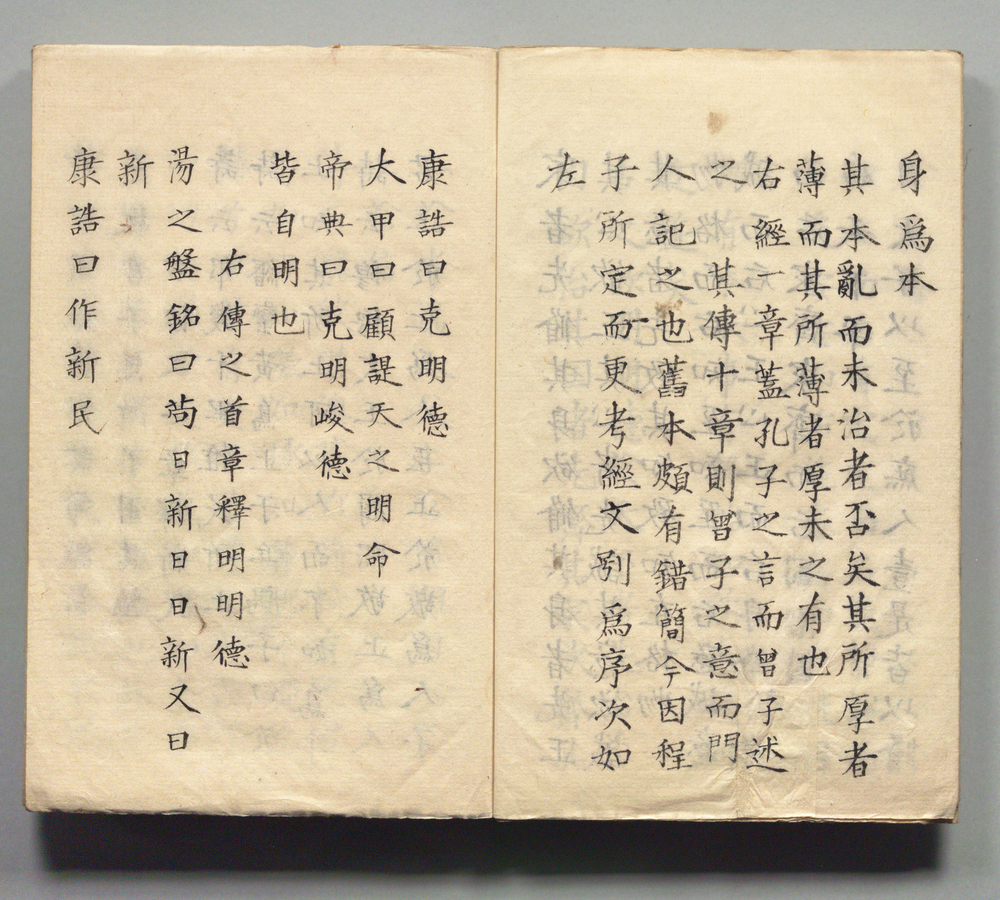 身爲本
其本亂而末治者否矣其所厚者
薄而其所薄者厚未之有也
右經一章蓋孔子之言而曾子述
之其傳十章則曾子之意而門
人記之也舊本頗有錯簡今因程
子所定而更考經文別爲序次如
左
康誥曰克明德
大甲曰顧諟天之明命
帝典曰克明峻德
皆自明也
右傳之首章釋明明德
湯之盤銘曰苟日新日日新又日
新
康誥曰作新民